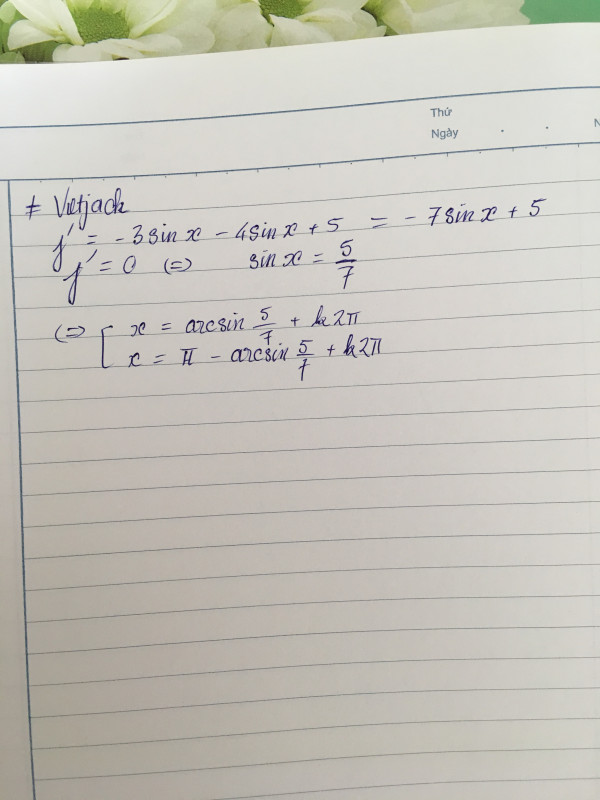 Thứ
Ngày . .
N
≠ Vietjack
y' = - 3sin x - 4sin x + 5 = - 7sin x + 5
y' = 0 (=) sin x = 5/7
(=) [ x = arcsin 5/7 + k2π
x = π - arcsin 5/7 + k2π